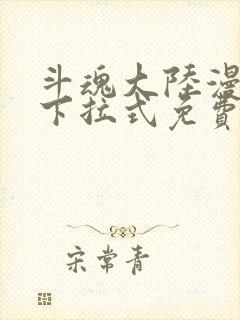 斗魂大陸漫
下拉式免費
宋常青